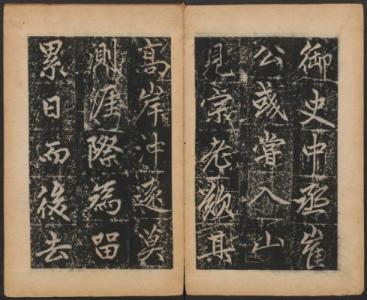 御史中丞崔
公或嘗入山
見宗老觀其
高岸沖邈莫
測涯際為留
累日而後去